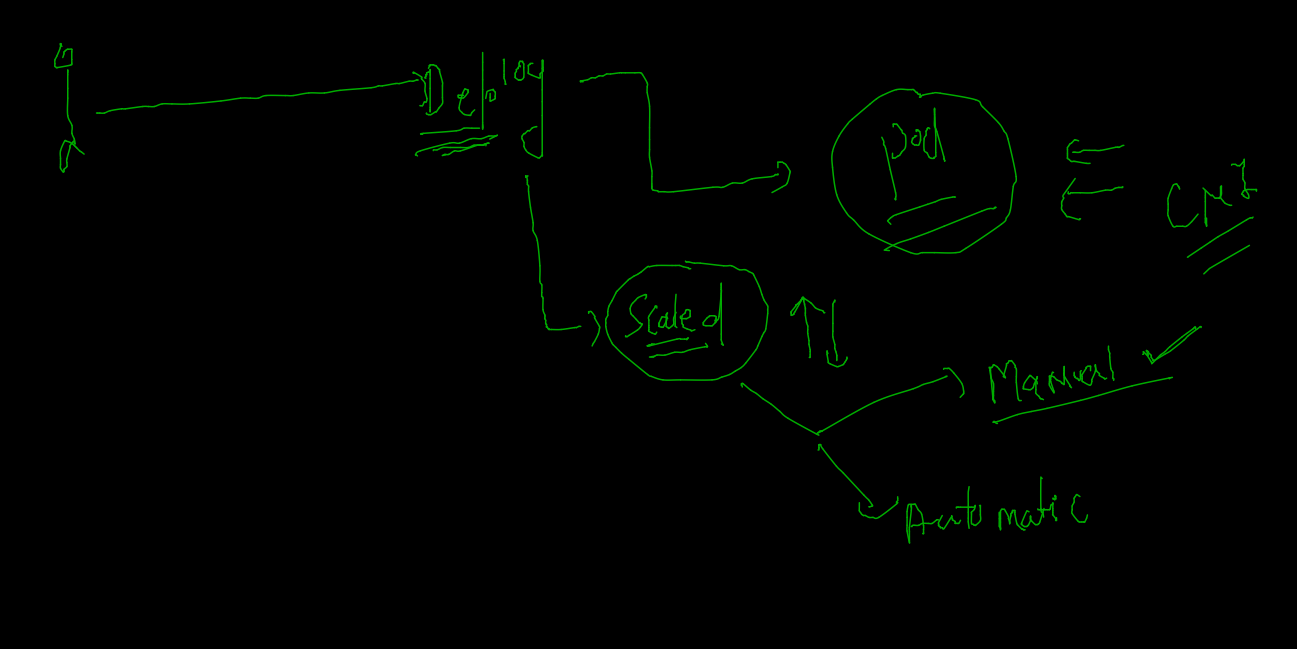 Deploy
pod
Scaled
Manual
Automatic